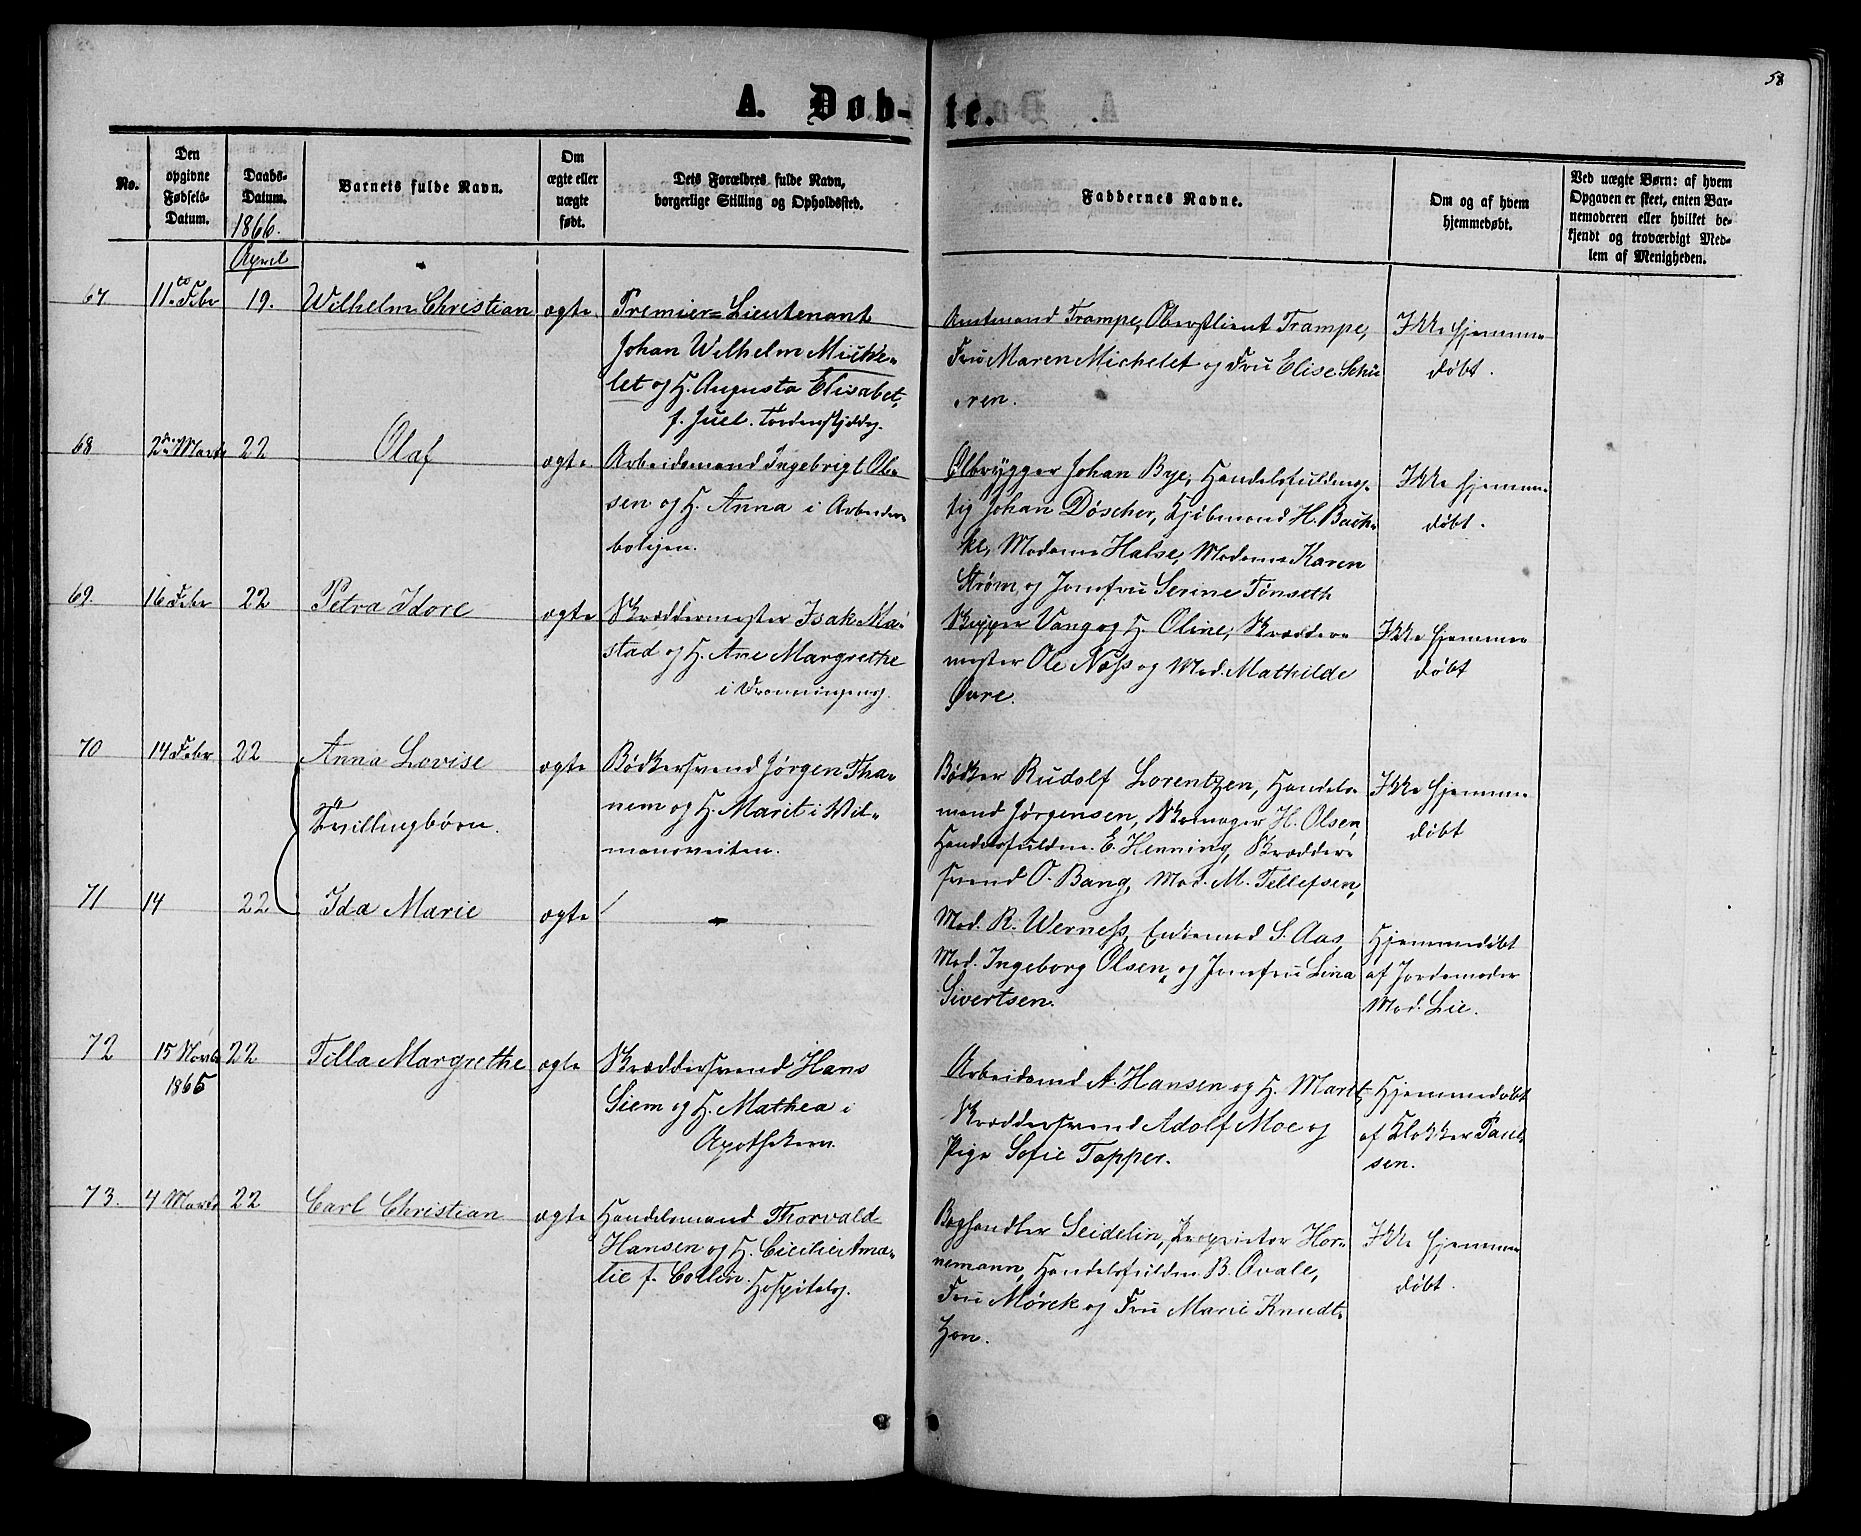 58
A. Døb-
te.
No.
Den opgivne Fødsels-Datum.
Daabs-Datum.
1866.
April
Barnets fulde Navn.
Om ægte eller uægte født.
Dets Forældres fulde Navn,
borgerlige Stilling og Opholdssted.
Faddernes Navne.
Om og af hvem
hjemmedøbt.
Ved uægte Børn: af hvem
Opgaven er skeet, enten Bar-
nemoderen eller hvilket be-
kjendt og troværdigt Med-
lem af Menigheden.
67
11te Febr
19.
Wilhelm Christian
ægte
Premier=Lieutenant
Johan Wilhelm Miche-
let og H. Augusta Elisabet,
f. Juel. Tordenskjoldsg.
Amtmand Trampe, Oberstlieut Trampe,
Fru Maren Michelet og Fru Elise Schu-
eren.
Ikke hjemme-
døbt.
68
2den Marts
22
Olaf
ægte
Arbeidsmand Ingebrigt Ol-
sen og H. Anna i Arbeider-
boligen.
Ølbrygger Johan Bye, Handelsfuldmæg-
tig Johan Döscher, Kjøbmand H. Bach-
ke, Madame Halse, Madame Karen
Strøm, og Jomfru Serine Tønseth
Ikke hjemme-
døbt.
69.
16 Febr
22
Petra Idore
ægte
Skræddermester Isak Mə-
stad og H. Ane Margrethe
i Dronningensg.
Skipper Vang og H. Oline, Skrædder-
mester Ole Næss og Mad. Mathilde
Øvre.
Ikke hjemme-
døbt
70
14 Febr
22
Anna Lovise
Tvillingbørn.
ægte
Bødkersvend Jørgen Tha-
nem og H. Marit i Wil-
mansveiten.
Bødker Rudolf Lorentzen, Handels-
mand Jørgensen, Skomager H. Olsen,
Handelsfuldm. E. Henning, Skrædder-
svend O. Bang, Mad. M. Tellefsen,
Ikke hjemme-
døbt
71
14
22
Ida Marie
ægte
Mad. R. Werness, Enkemad S. Aas
Mad. Ingeborg Olsen, og Jomfru Lina
Sivertsen.
Hjemmedøbt
af Jordemoder
Mad. Lie.
72
15 Novbr
1865
22
Tilla Margrethe
ægte
Skræddersvend Hans
Siem og H. Mathea i
Apothekerv.
Arbeidsmd A. Hansen og H. Marit,
Skræddersvend Adolf Moe og
Pige Sofie Tapper.
Hjemmedøbt
af Klokker Paul-
sen.
73.
4 Marts
22
Carl Christian
ægte
Handelsmand Thorvald
Hansen og H. Cicilie Ama-
lie f. Collin. Hospitalsg.
Boghandler Seidelin, Proprietær Hor-
nemann, Handelsfuldm B. Qvale,
Fru Mørck og Fru Marie Knudt-
zon.
Ikke hjemme-
døbt.